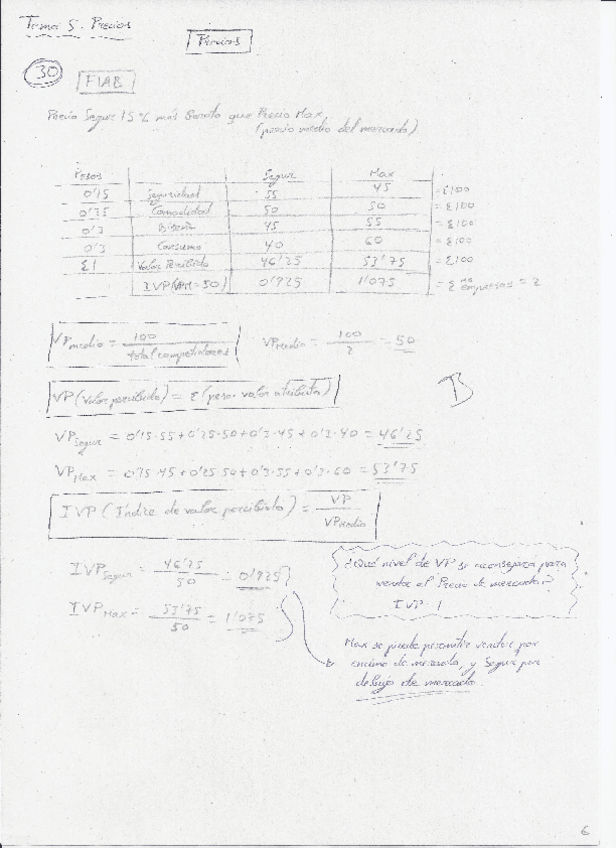 Tema 5. Precios
Precios
30
FIAB
Precio Segur 15% más barato que Precio Max
(precio medio del mercado)
Pesos Segur Max
0'15 Seguridad 55 45 = Σ100
Comodidad 50 50 = Σ100
0'3 45 55 = Σ100
0'3 Consumo 40 60 = Σ100
Σ1 Valor Percibido 46'25 53'75 = Σ100
IVP 50) 0'925 1'075 = Σ nº empresas = 2
VPmedio = 100 / total competidores VPmedio = 100 / 2 = 50
B
VP (Valor percibido) = Σ (peso · valor atributo)
VP Segur = 0'15·55+0'25·50+0'3·45+0'3·40 = 46'25
VP Max = 0'15·45+0'25·50+0'3·55+0'3·60 = 53'75
IVP (Índice de valor percibido) = VP / VPMedio
IVP Segur = 46'25 / 50 = 0'925
IVP Max = 53'75 / 50 = 1'075
¿Qué nivel de VP se aconsejara para
vender al Precio de mercado?
IVP 1
Max se puede permitir vender por
encima de mercado, y Segur por
debajo de mercado.
6